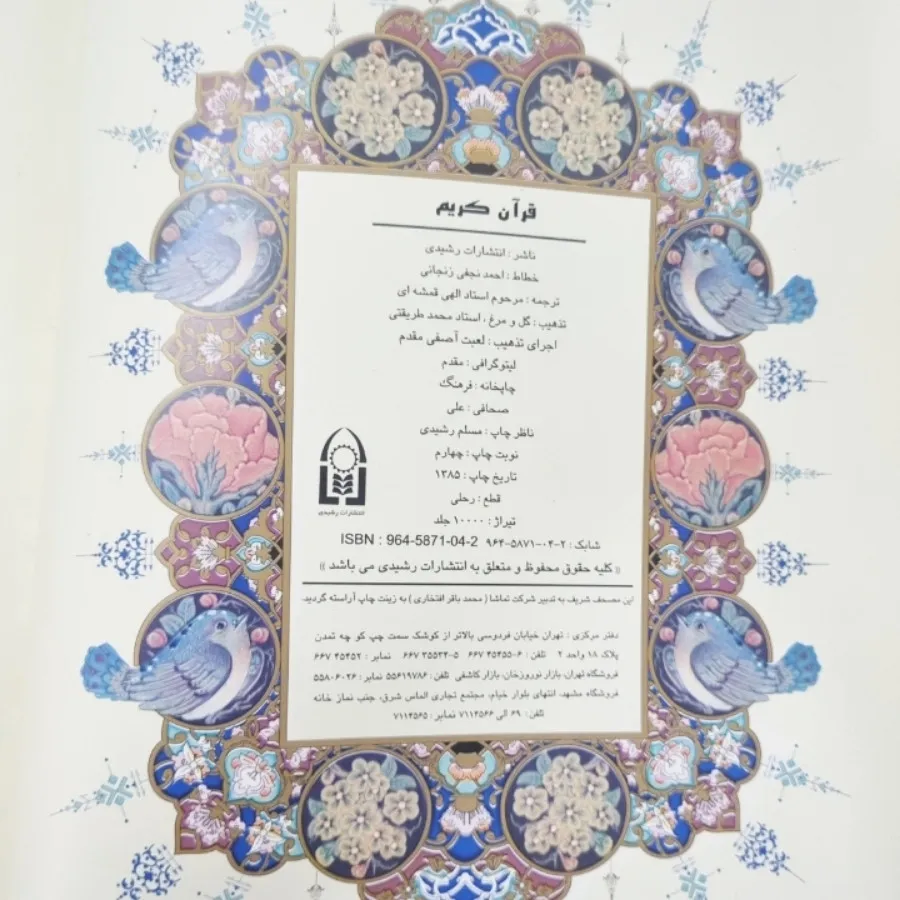 قرآن کریم
ناشر : انتشارات رشیدی
خطاط : احمد نجفی زنجانی
ترجمه : مرحوم استاد الهی قمشه ای
تذهیب : گل و مرغ ، استاد محمد طریقتی
اجرای تذهیب : لعبت آصفی مقدم
لیتوگرافی : مقدم
چاپخانه : فرهنگ
صحافی : علی
ناظر چاپ : مسلم رشیدی
نوبت چاپ : چهارم
تاریخ چاپ : ۱۳۸۵
قطع : رحلی
تیراژ : ۱۰۰۰۰ جلد
انتشارات رشیدی
شابک : ۲-۰۴-۵۸۷۱-۹۶۴ ISBN : 964-5871-04-2
(( کلیه حقوق محفوظ و متعلق به انتشارات رشیدی می باشد ))
این مصحف شریف به تدبیر شرکت تماشا ( محمد باقر افتخاری ) به زینت چاپ آراسته گردید.
دفتر مرکزی : تهران خیابان فردوسی بالاتر از کوشک سمت چپ کو چه تمدن
پلاک ۱۸ واحد ۲ تلفن : ۶-۴۵۴۵۵ ۶۶۷ ۵-۳۵۵۳۴ ۶۶۷ نمابر : ۴۵۴۵۲ ۶۶۷
فروشگاه تهران، بازار نوروزخان، بازار کاشفی تلفن : ۵۵۶۱۹۷۸۶ نمابر : ۵۵۸۰۶۰۲۶
فروشگاه مشهد، انتهای بلوار خیام، مجتمع تجاری الماس شرق، جنب نماز خانه
تلفن : ۶۹ الی ۷۱۱۴۵۶۶ نمابر : ۷۱۱۴۵۶۵